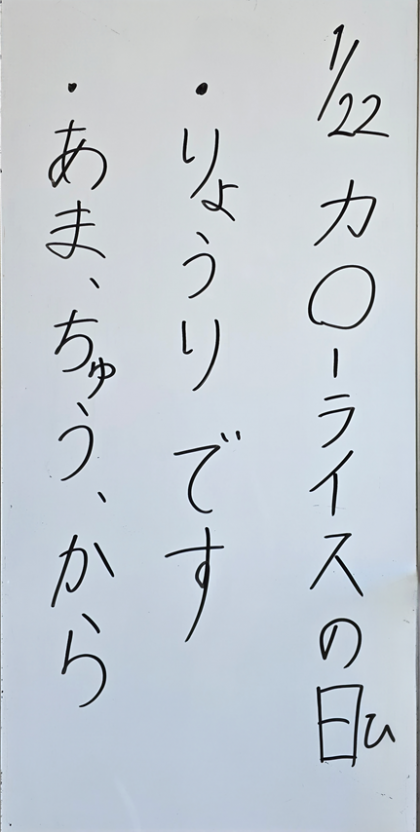 1/22 カ〇ーライスの日ひ
・りょうりです
・あま、ちゅう、から